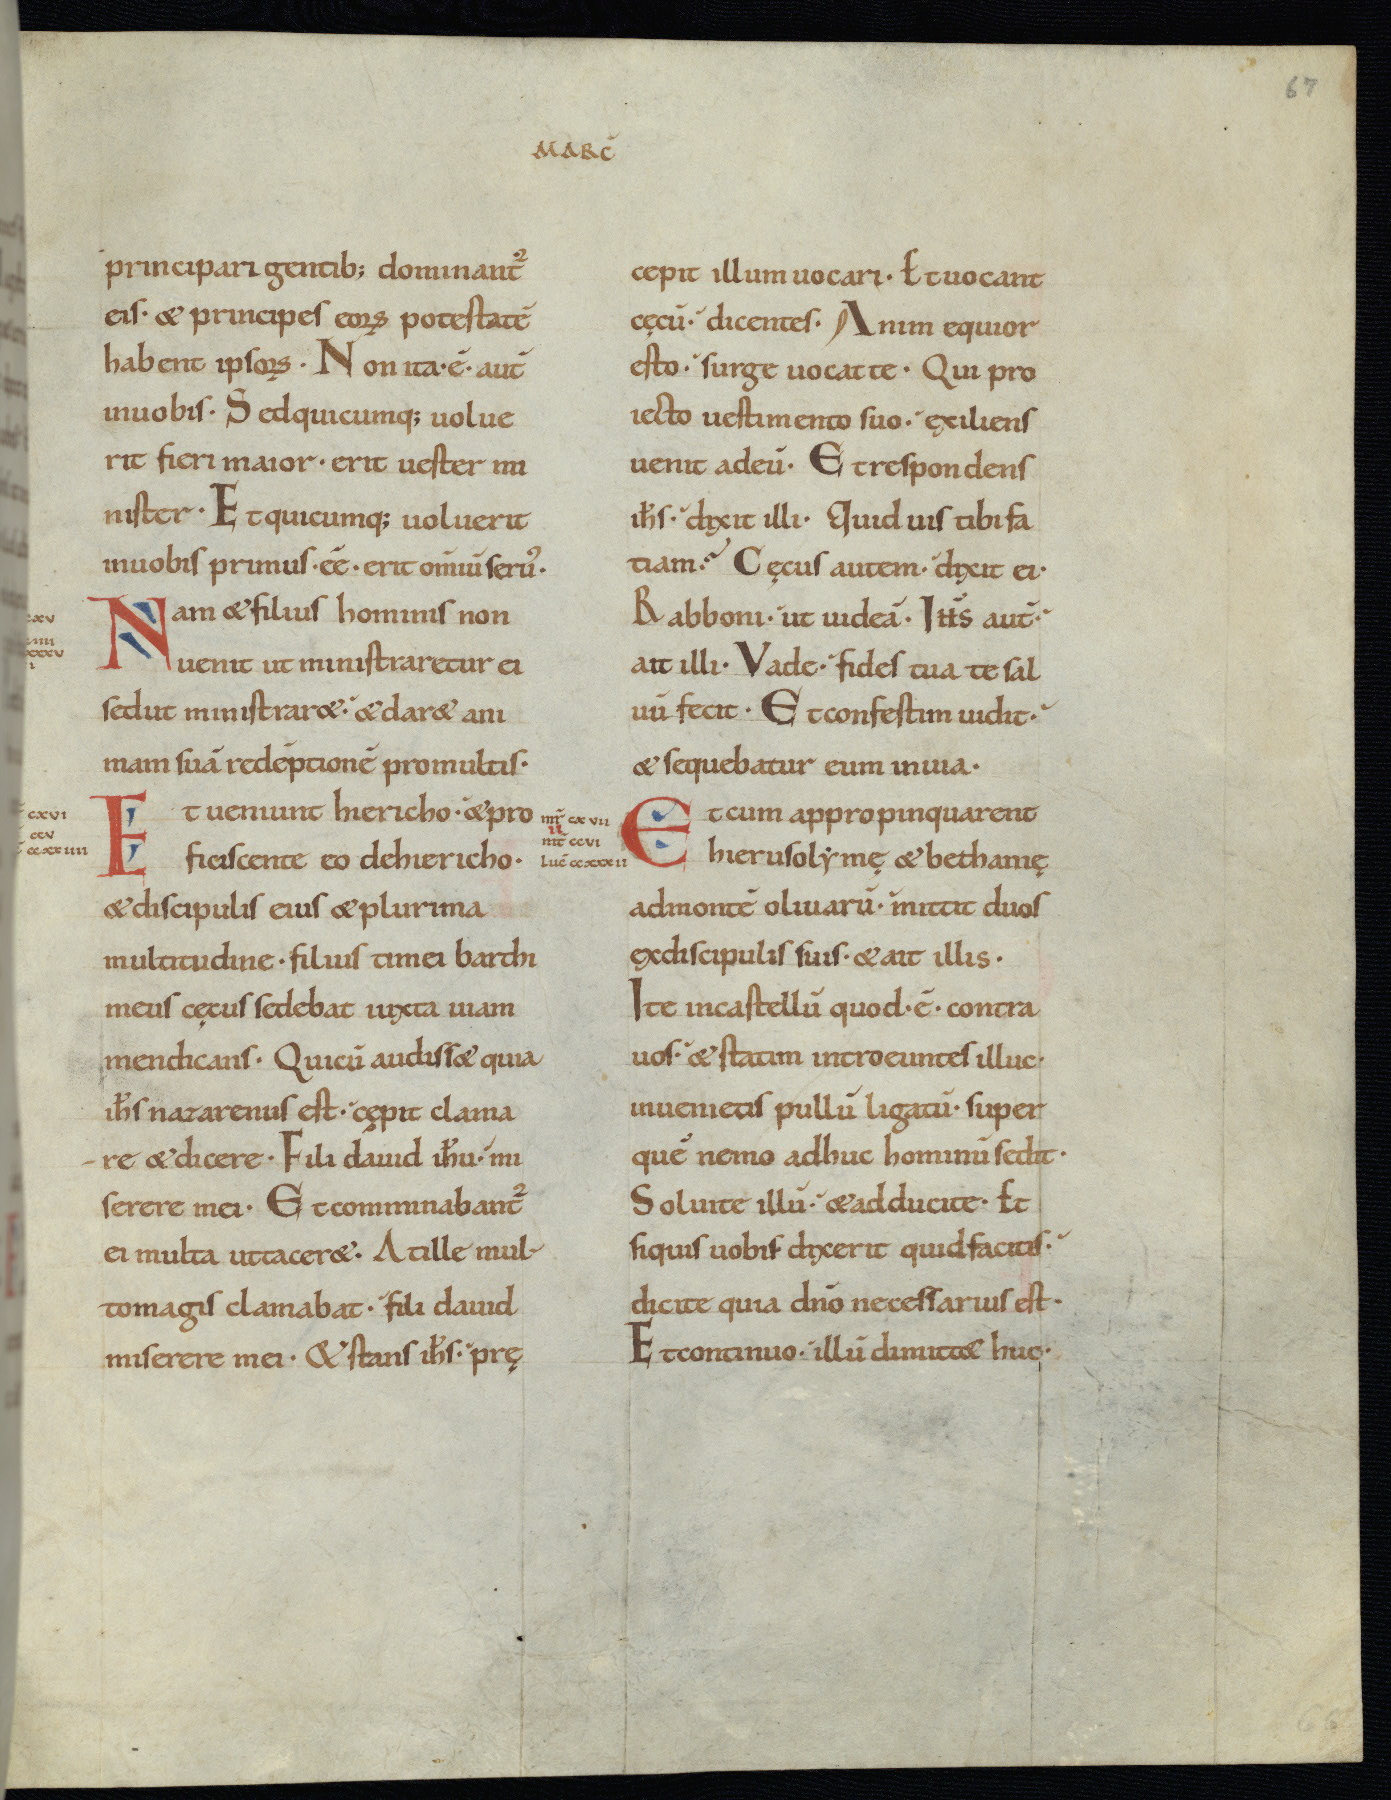 67
MARC̄
principari gentib; dominant᷑
eis· & principes eoꝝ potestatē
habent ipsoꝝ· Non ita·ē· aut̄
inuobis· Sedquicumq; uolue
rit fieri maior· erit uester mi
nister· Etquicumq; uoluerit
inuobis primus·eē· erit omīu seruꝰ·
Nam &filius hominis non
uenit ut ministraretur ei
sedut ministrar&· &dar& ani
mam suā redēptionē promultis·
Et ueniunt hiericho· &pro
ficiscente eo dehiericho·
&discipulis eius &plurima
multitudine· filius timei barthi
meus cęcus sedebat iuxta uiam
mendicans· Quicū audiss& quia
ih̄s nazarenus est· cępit clama
re &dicere· Fili dauid ih̄u· mi
serere mei· Etcomminabant᷑
ei multa uttacer&· Atille mul-
tomagis clamabat· fili dauid
miserere mei· &stans ih̄s· prę
cepit illum uocari· Etuocant
cęcū· dicentes· Anim equior
esto· surge uocat te· Qui pro
iecto uestimento suo· exiliens
uenit adeū· Etrespondens
ih̄s· dixit illi· Quid uis tibi fa
tiam? Cęcus autem· dixit ei·
Rabboni· ut uideā· Ih̄s aut̄·
ait illi· Vade· fides tua te sal
uū fecit· Etconfestim uidit·
& sequebatur eum inuia·
mr̄ cxvii
mt̄ ccvi
luc̄ ccxxxii
Etcum appropinquarent
hierusolymę & bethanię
admontē oliuarū· mittit duos
exdiscipulis suis· & ait illis·
Ite incastellū quod·ē· contra
uos· & statim introeuntes illuc·
inuenietis pullū ligatū· super
quē nemo adhuc hominū sedit·
Soluite illū· &adducite· Et
siquis uobis dixerit quid facitis·
dicite quia dn̄o necessarius est·
Etcontinuo· illū dimitt& huc·